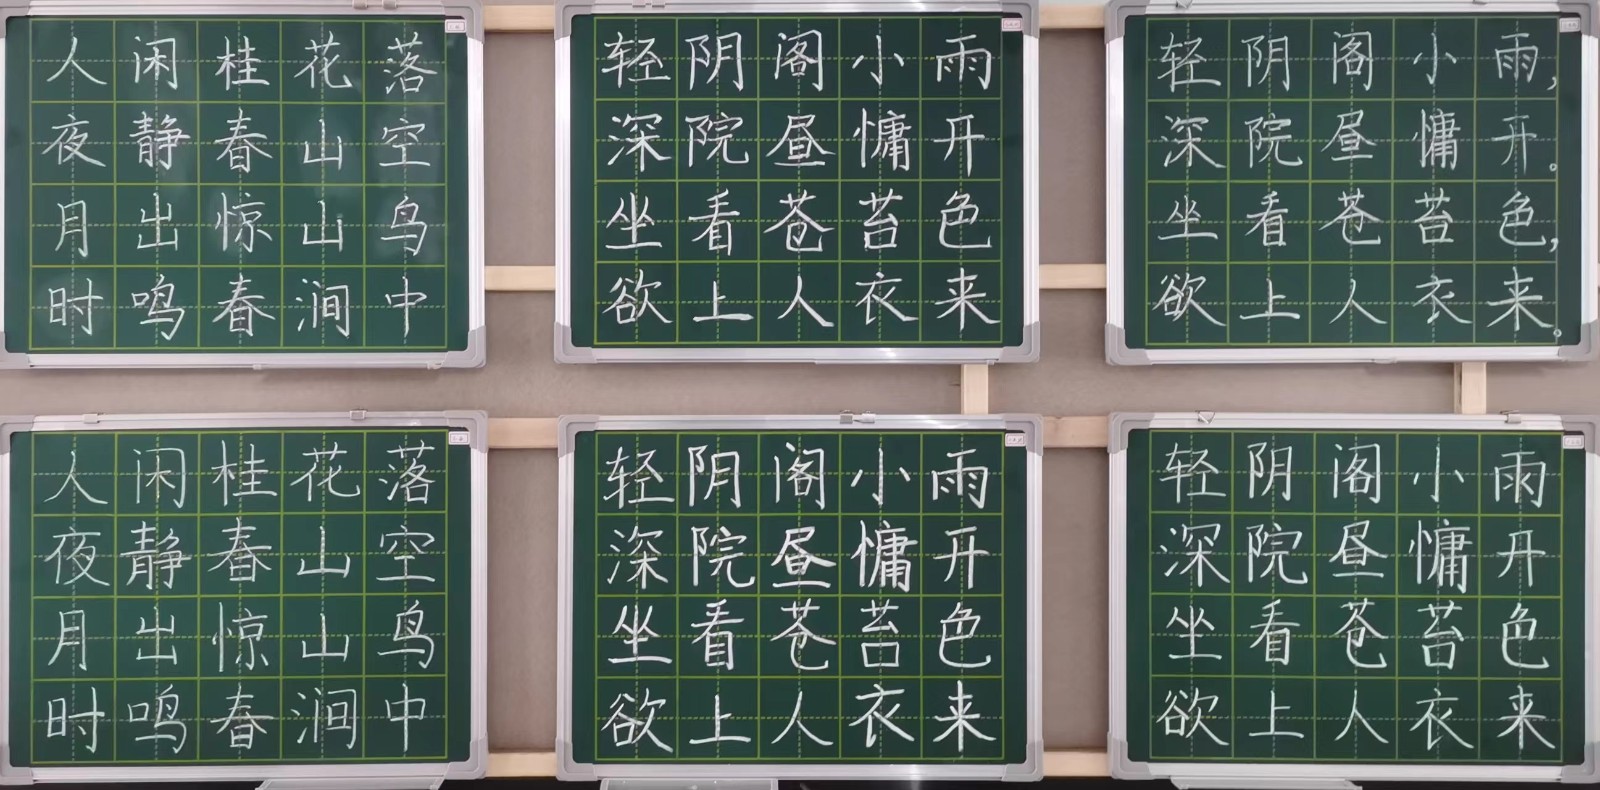 人闲桂花落
夜静春山空
月出惊山鸟
时鸣春涧中
轻阴阁小雨
深院昼慵开
坐看苍苔色
欲上人衣来
轻阴阁小雨，
深院昼慵开。
坐看苍苔色，
欲上人衣来。
人闲桂花落
夜静春山空
月出惊山鸟
时鸣春涧中
轻阴阁小雨
深院昼慵开
坐看苍苔色
欲上人衣来
轻阴阁小雨
深院昼慵开
坐看苍苔色
欲上人衣来